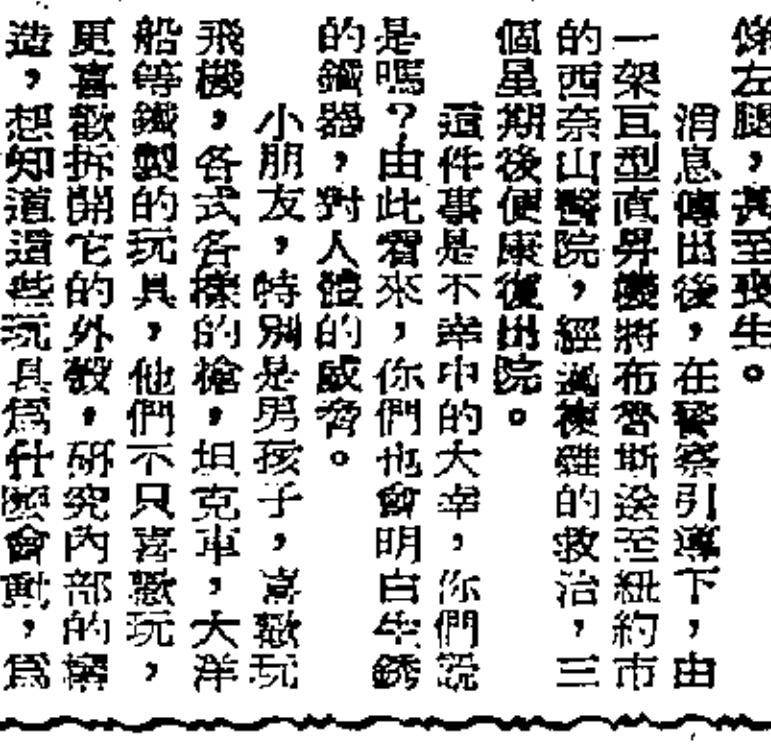 條左腿，甚至喪生。
消息傳出後，在警察引導下，由
一架巨型直昇機將布魯斯送至紐約市
的西奈山醫院，經過複雜的救治，三
個星期後便康復出院。
這件事是不幸中的大幸，你們說
是嗎？由此看來，你們也會明白生銹
的鐵器，對人體的威脅。
小朋友，特別是男孩子，喜歡玩
飛機，各式各樣的槍，坦克車，大洋
船等鐵製的玩具，他們不只喜歡玩，
更喜歡拆開它的外殼，研究內部的構
造，想知道這些玩具爲什麼會動，爲